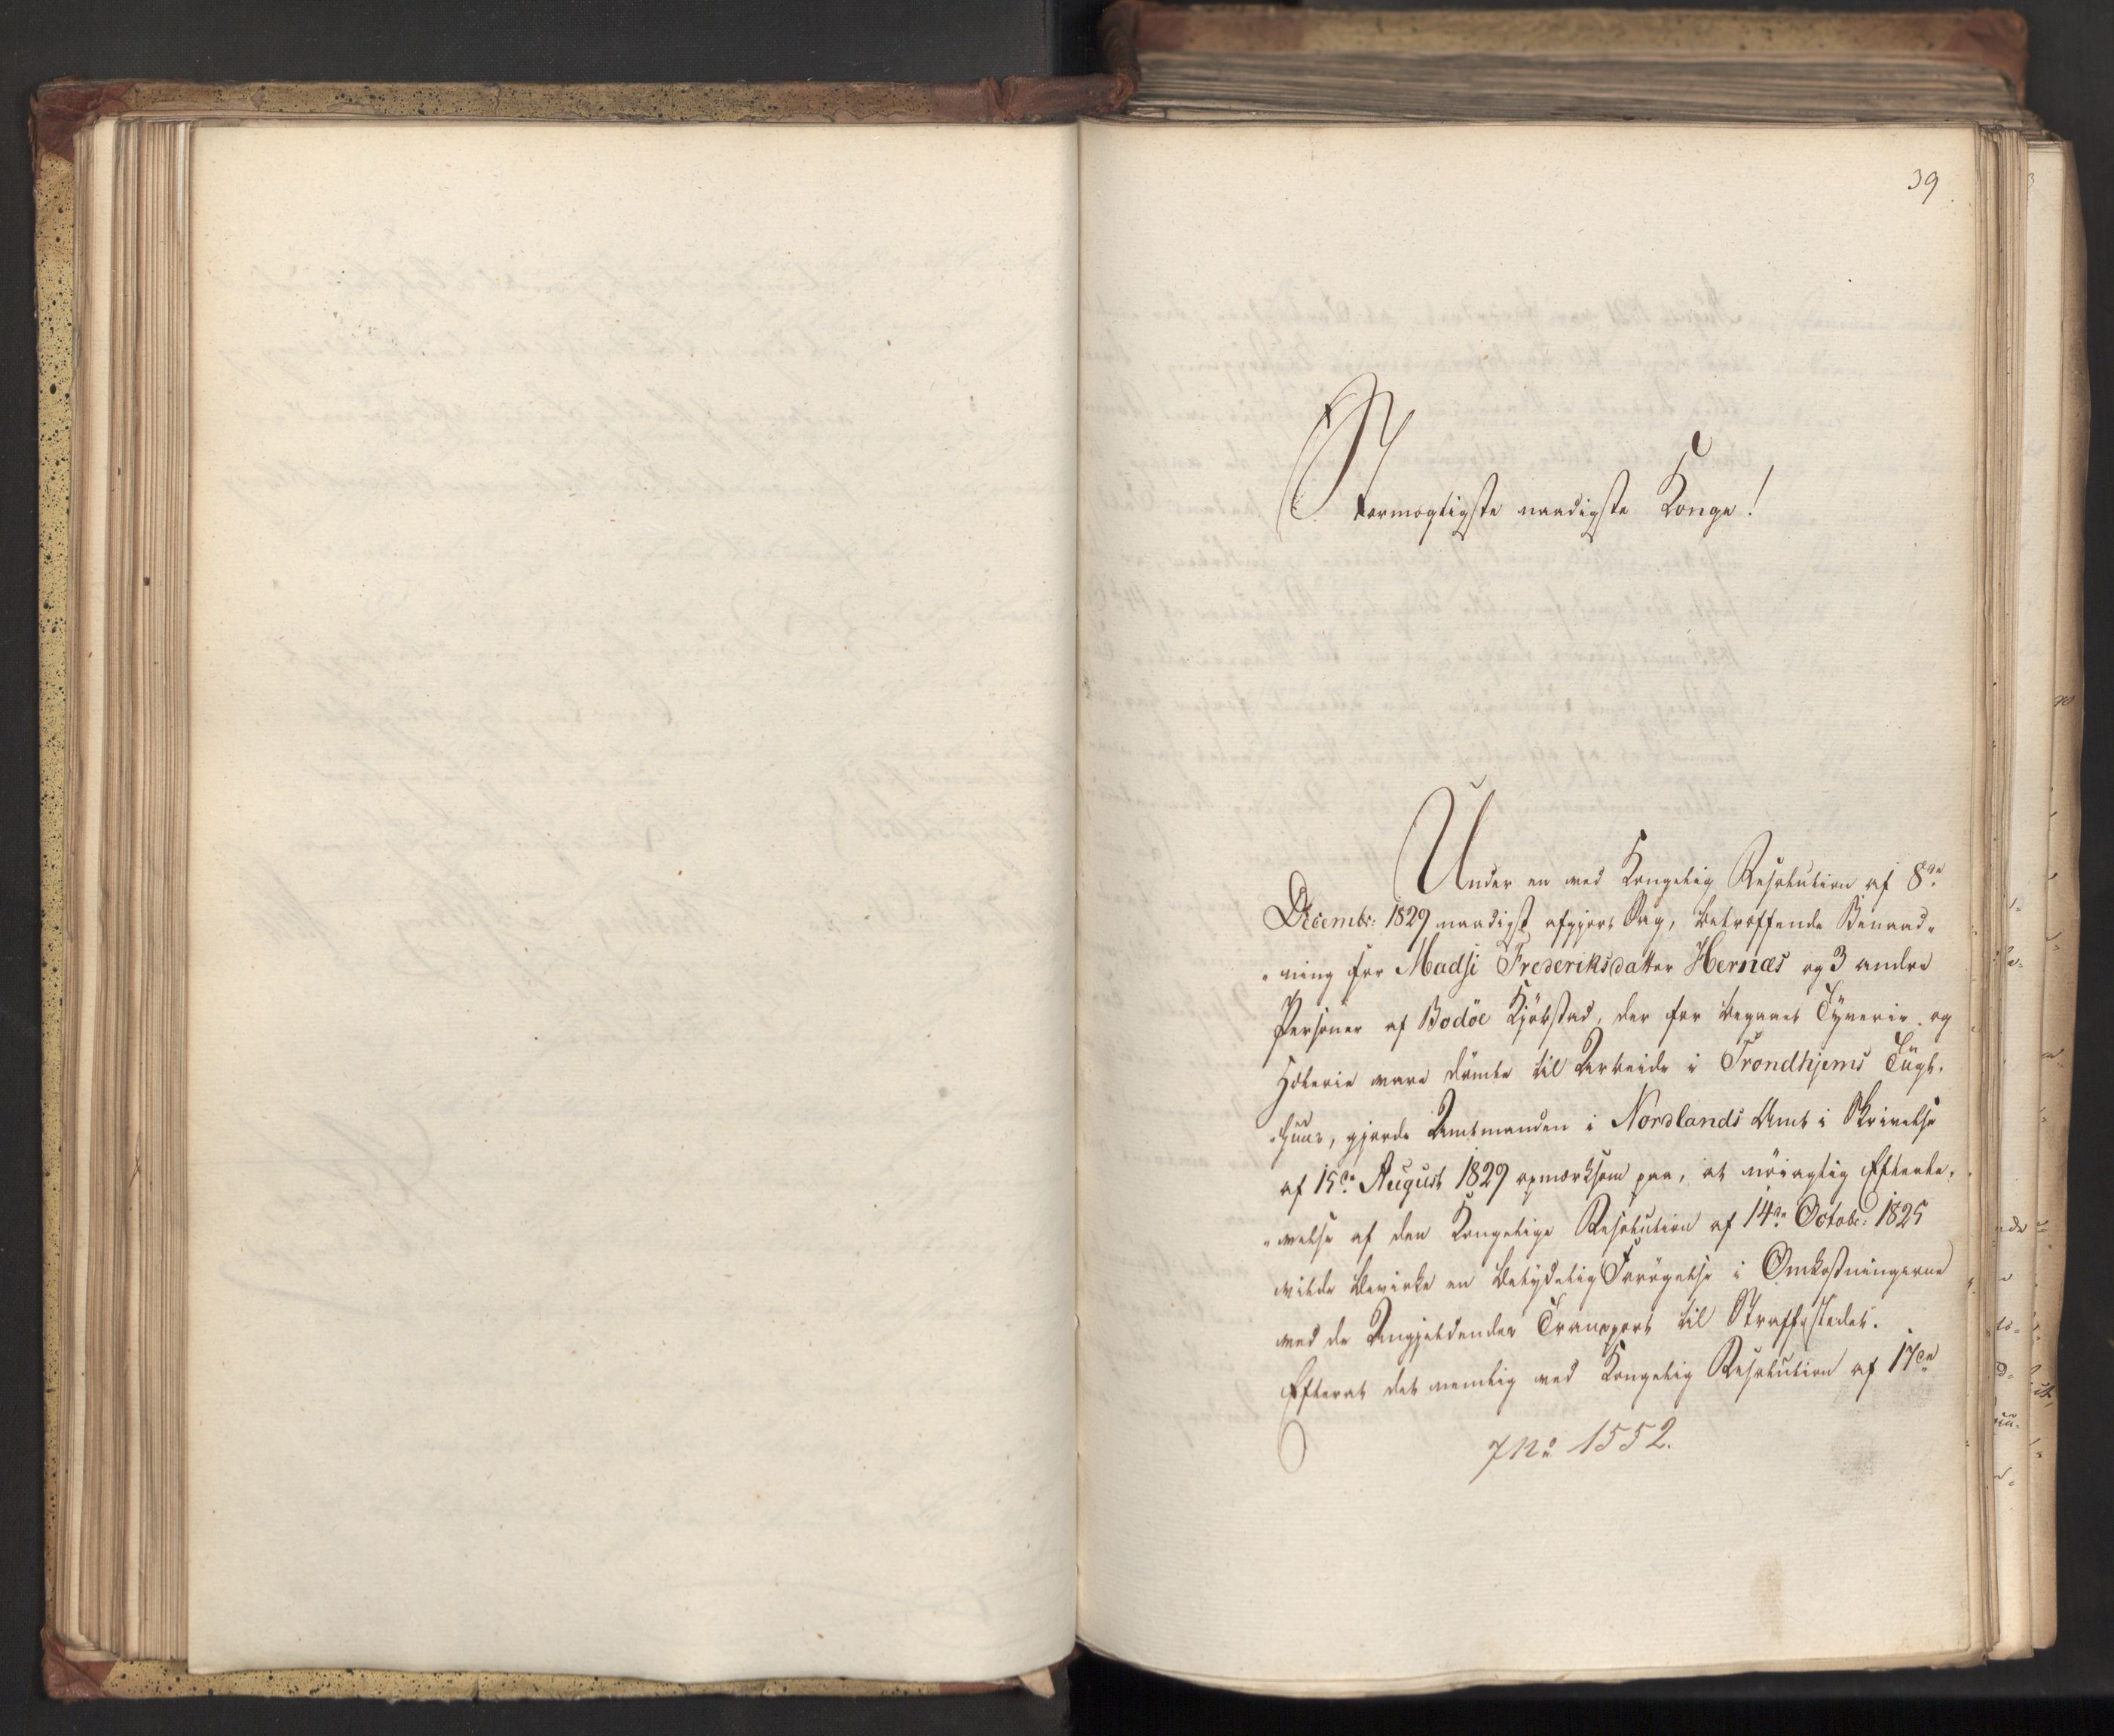 39
Stormægtigste naadigste Konge!
Under en ved Kongelig Resolution af 8de
Decembr: 1829 naadigst afgjort Sag, betræffende Benaad-
-ning for Madsi Frederiksdatter Hernæs og 3 andre
Personer af Bodöe Kjöbstad, der for begaaet Tyverie og
Hælerie vare dömte til Arbeide i Trondhjems Tugt-
-huus, gjorde Amtmanden i Nordlands Amt i Skrivelse
af 15de August 1829 opmærksom paa, at nöiagtig Efterle-
-velse af den Kongelige Resolution af 14de Octobr: 1825
vilde bevirke en betydelig Forögelse i Omkostningerne
ved de Angjeldendes Transport til Straffestedet.
Efterat det nemlig ved Kongelig Resolution af 17de
JNo 1552.